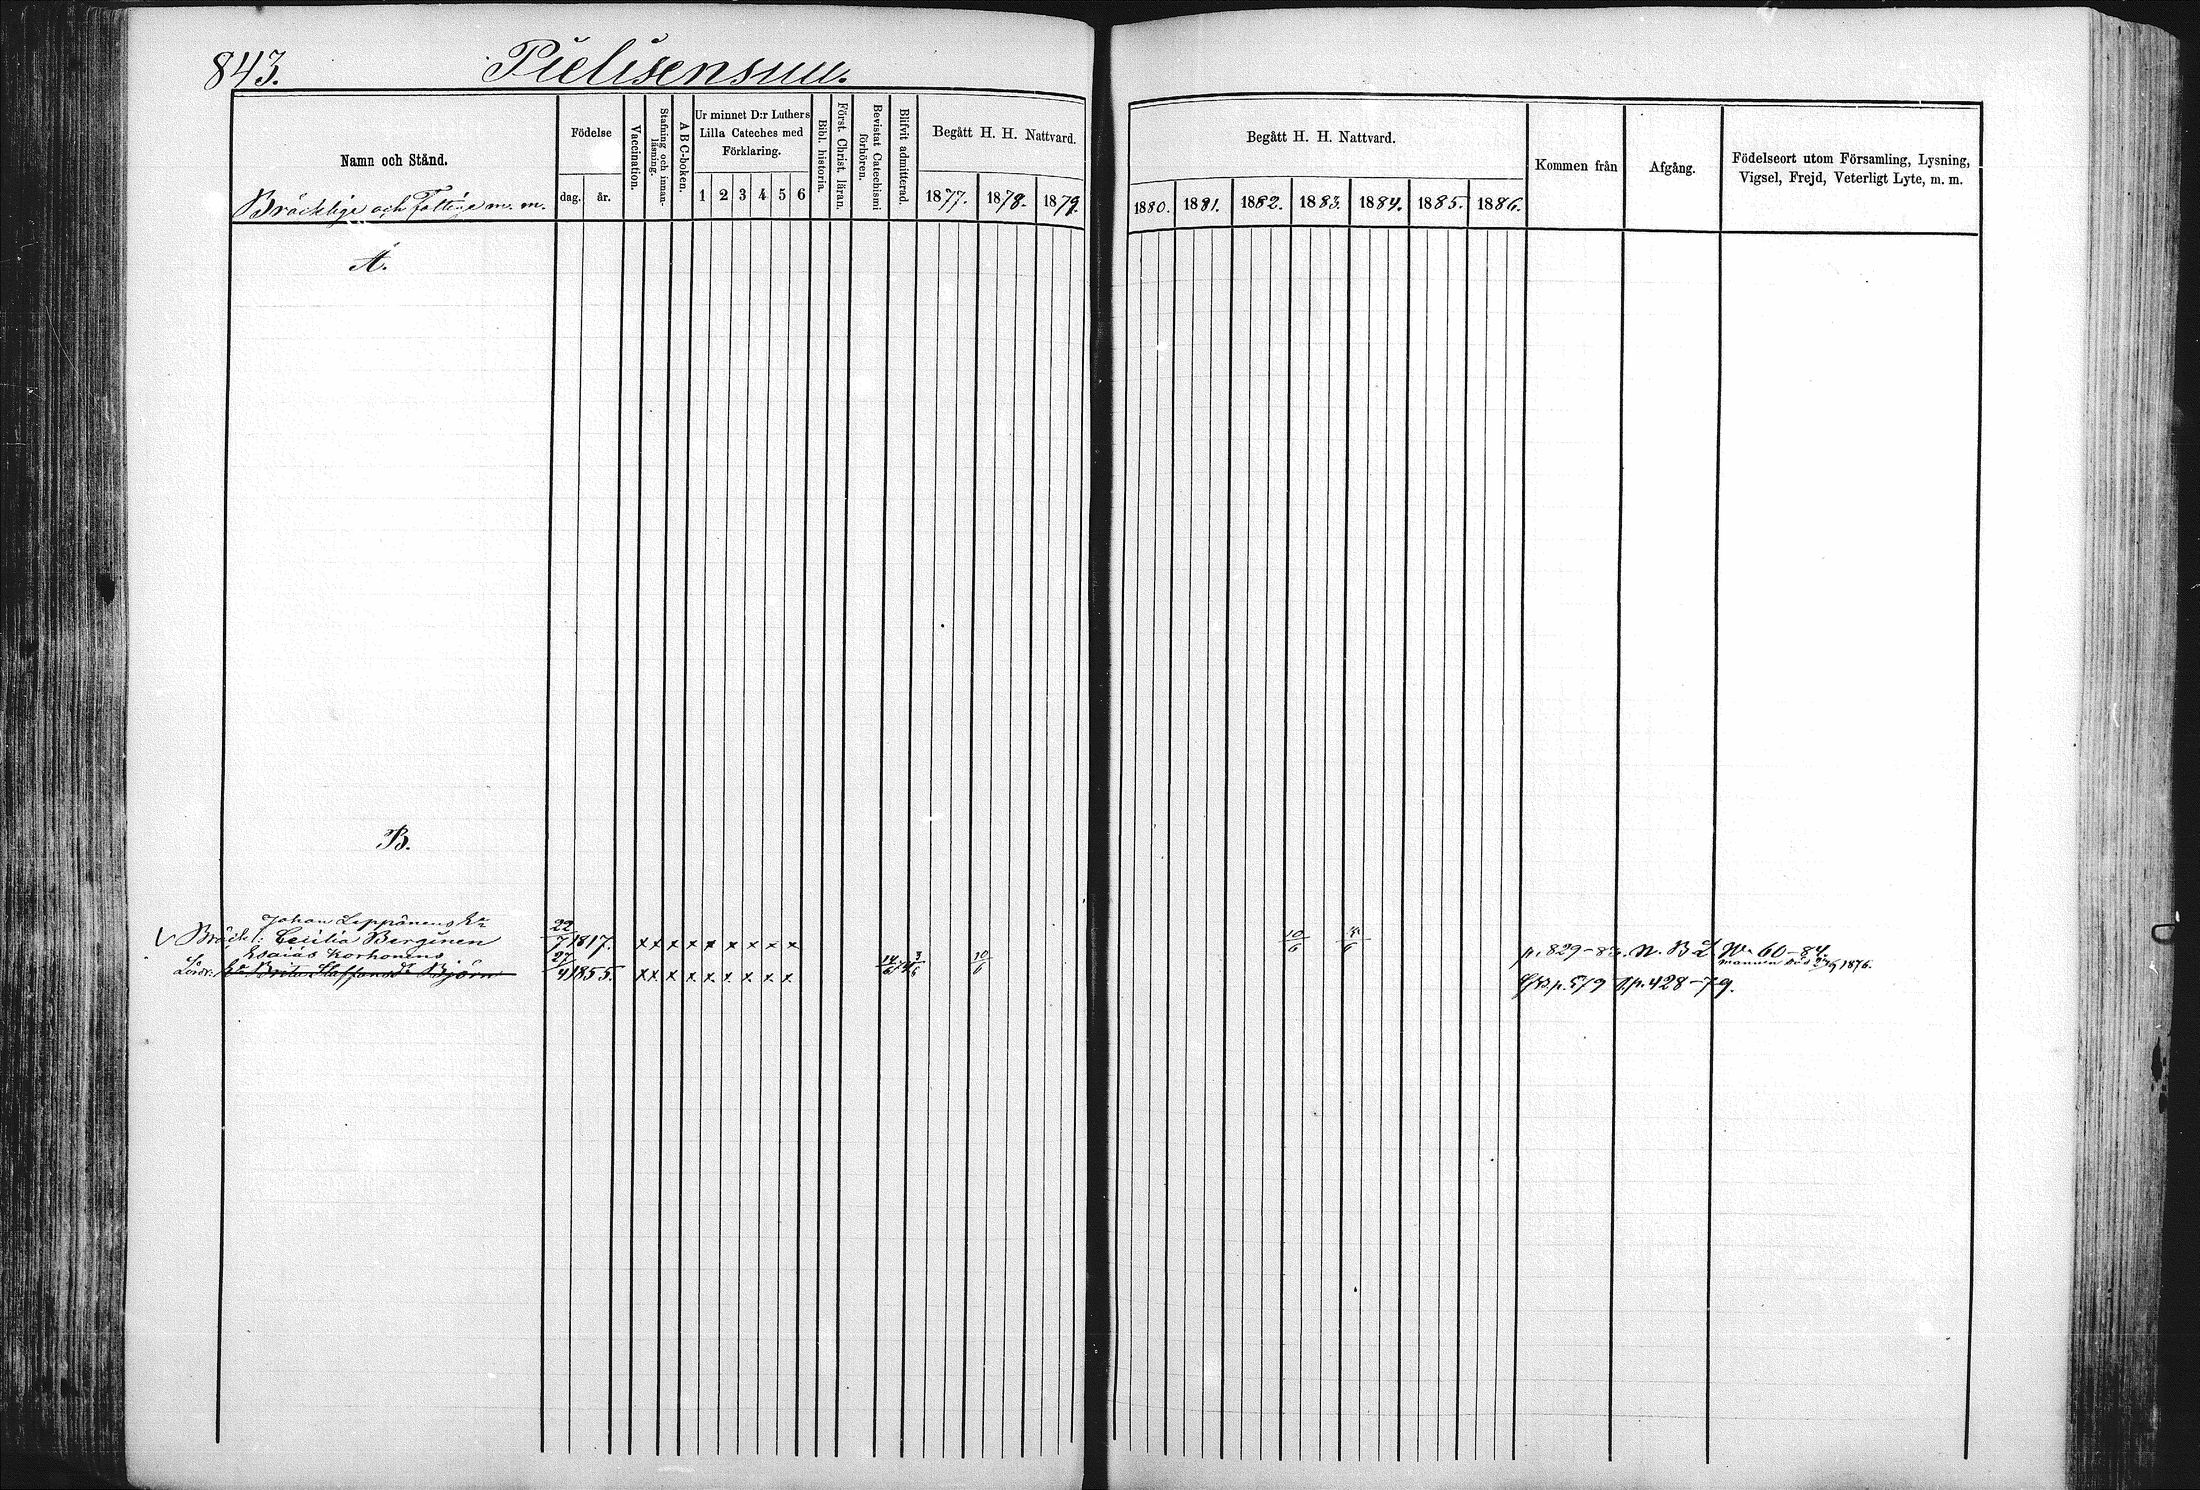 843. Pielisensuu.
Namn och Stånd.
Bräcklige och Fattige m. m.
Födelse
dag. år.
Vaccination.
Stafning och innanläsning.
A B C-boken.
Ur minnet D:r Luthers
Lilla Cateches med
Förklaring.
1 2 3 4 5 6
Bibl. historia.
Först. Christ. läran.
Bevistat Catechismi
förhören.
Blifvit admitterad.
Begått H. H. Nattvard.
1877. 1878. 1879.
Begått H. H. Nattvard.
1880. 1881. 1882. 1883. 1884. 1885. 1886.
Kommen från
Afgång.
Födelseort utom Församling, Lysning,
Vigsel, Frejd, Veterligt Lyte, m. m.
A.
B.
Johan Leppänens
Bräckl: Cecilia Berginen 22/7 1817. x x x x x x x x x 10/6 p. 829-83. N. B. 60-84.
mannen död 1876.
Esaias Korhonens
Brita Staffansdr Björn 27/4 1855. x x x x x x x x x 14/6 3/6 10/6 p. 579 p. 428-79.